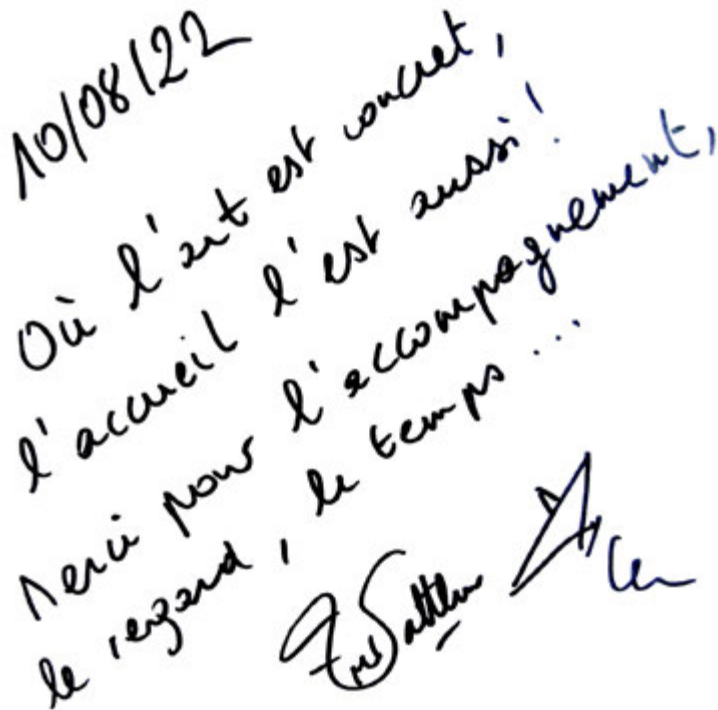 10/08/22
Où l'art est concret,
l'accueil l'est aussi !
Merci pour l'accompagnement,
le regard, le temps...